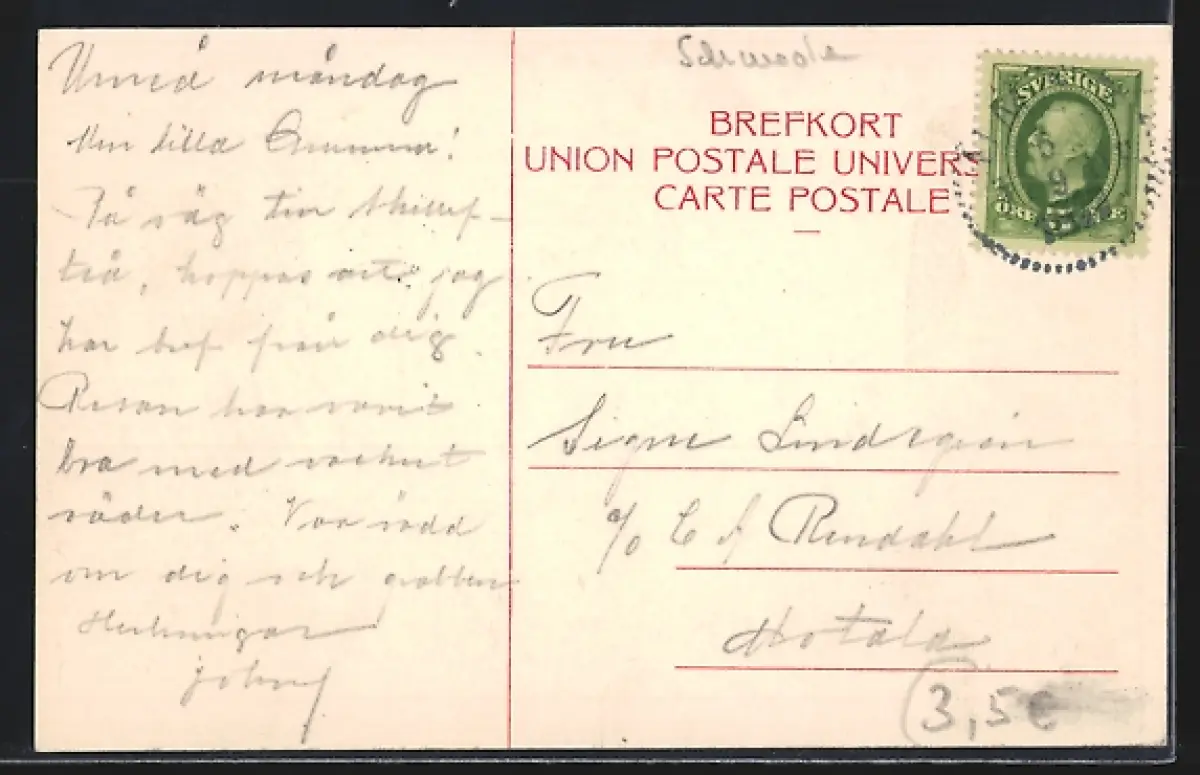 Umeå måndag
Min lilla Gumma!
På väg till Skellef-
teå, hoppas att jag
har bref från dig.
Resan har varit
bra med vackert
väder. Var rädd
om dig och grabben
Helsningar
John
Schwede
BREFKORT
UNION POSTALE UNIVERS
CARTE POSTALE
SVERIGE
5 ÖRE
Fru
Signe Lindegren
c/o C A Rendahl
Motala
3,5€